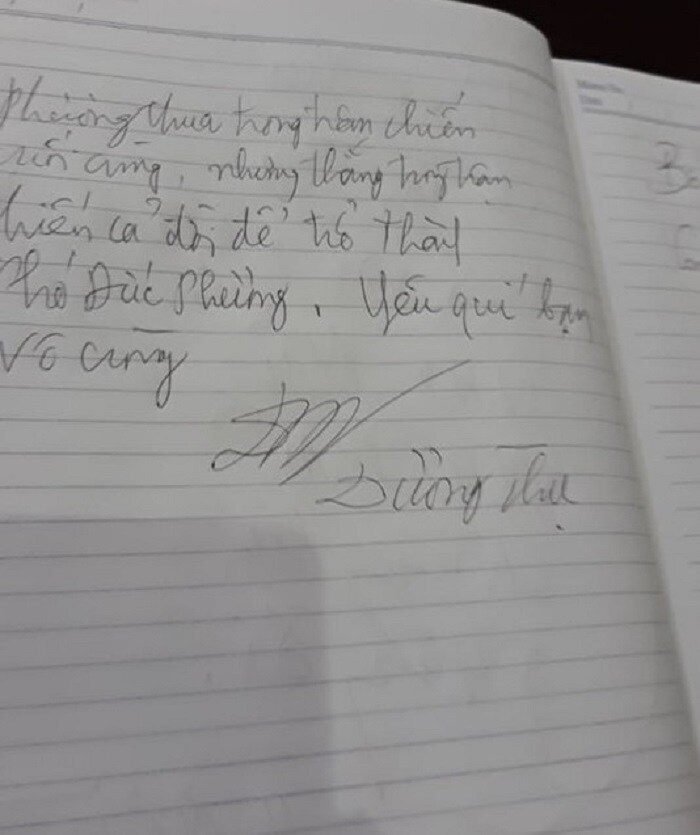 Phường thua trong trận chiến
cuối cùng, nhưng thắng trong trận
chiến cả đời để trở thành
Phó Đức Phường. Yêu quí bạn
vô cùng
Dương Thụ